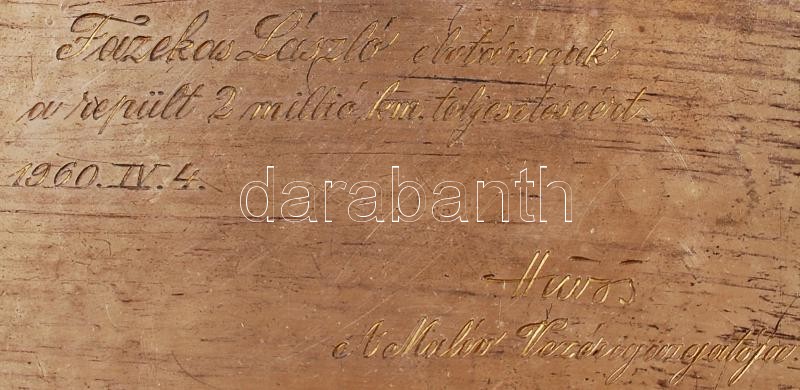 Fazekas László elvtársnak
a repült 2 millió km. teljesítéséért
1960. IV. 4.
darabanth
Hüvös
A Malév Vezérigazgatója